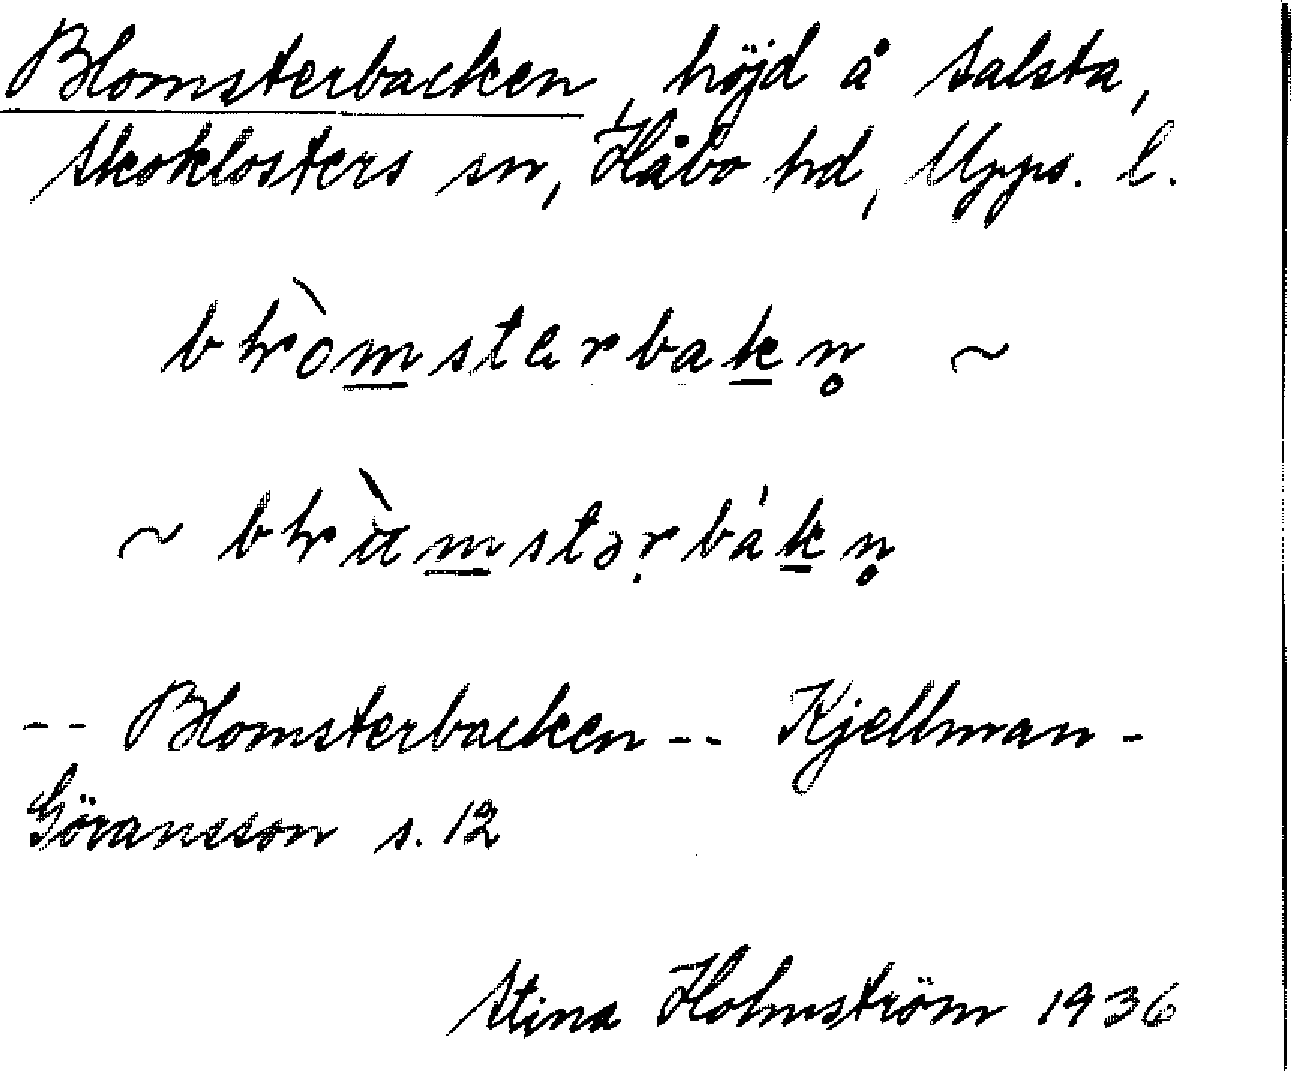 Blomsterbacken, höjd å Salsta,
Skoklosters sn, Håbo hd, Upps. l.
~
~
-- Blomsterbacken -- Kjellman-
Göransson s. 12
Stina Holmström 1936